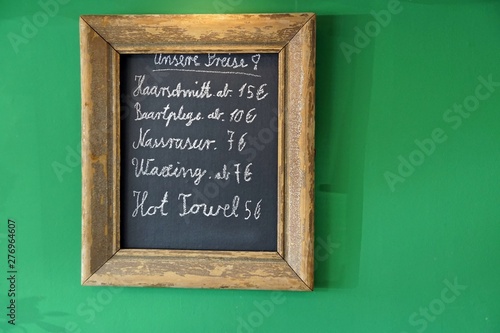 Unsere Preise !
Haarschnitt ab 15€
Bartpflege ab 10€
Nassrasur 7€
Waxing ab 7€
Hot Towel 5€
Adobe Stock | #276964607